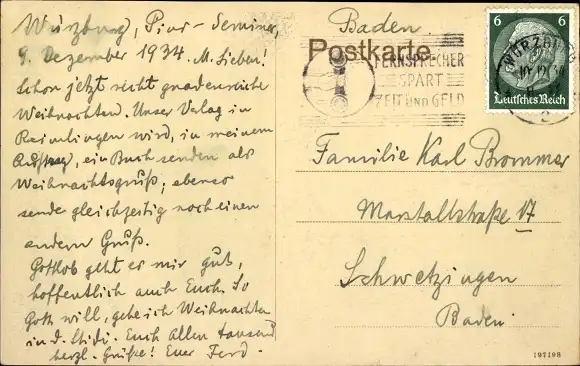 Würzburg, Pius-Seminar,
9. Dezember 1934. M. Lieben!
Schon jetzt recht gnadenreiche
Weihnachten. Unser Verlag in
Raimlingen wird, in meinem
Auftrag, ein Buch senden als
Weihnachtsgruß; ebenso
sende gleichzeitig noch einen
andern Gruß.
Gottlob geht es mir gut,
hoffentlich auch Euch. So
Gott will, gehe ich Weihnachten
in d. Euch Allen tausend
herzl. Grüße! Euer Ferd.
Baden.
Postkarte
FERNSPRECHER
SPART
ZEIT UND GELD
WÜRZBURG
2
6 6
Deutsches Reich
Familie Karl Brommer
Marstallstraße 17
Schwetzingen
Baden.
197198